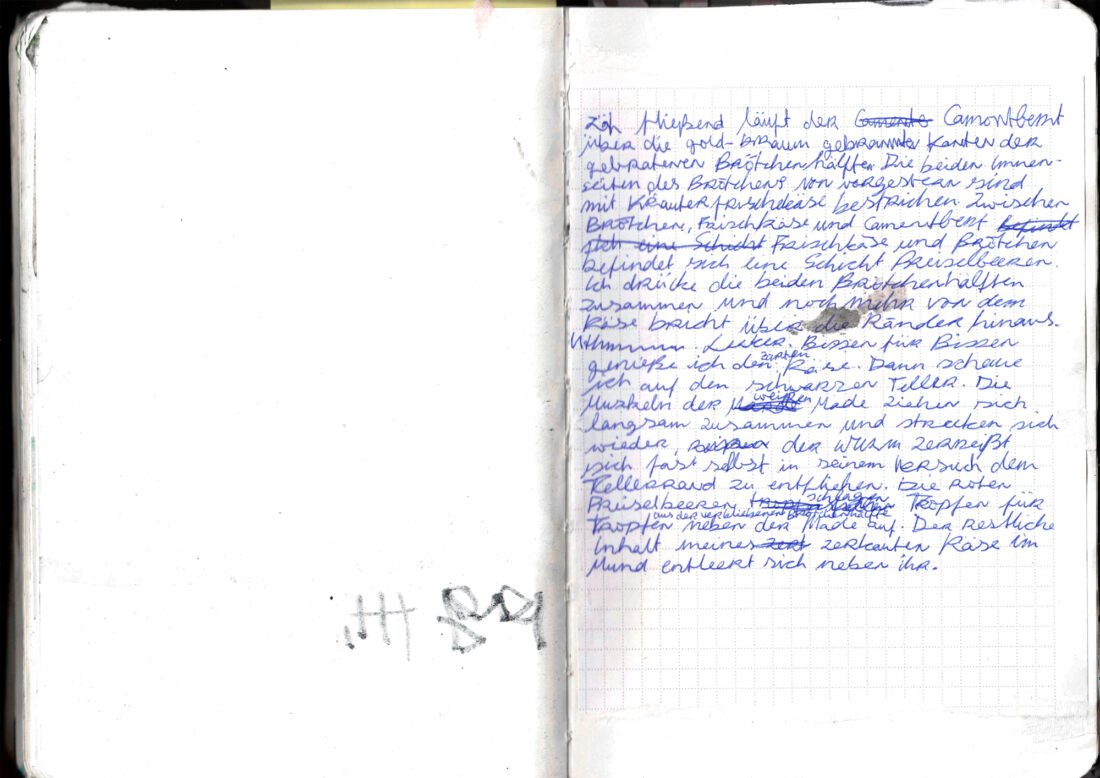 Zäh fließend läuft der Camontbemt
über die gold-braun gebrannten Kanten der
gebratenen Brötchenhälften. Die beiden Innen-
seiten des Brötchens von vorgestern sind
mit Kräuterfrischkäse bestrichen. Zwischen
Brötchen, Frischkäse und Camentbemt befindet
sich eine Schicht Frischkäse und Brötchen
befindet sich eine Schicht Preiselbeeren.
Ich drücke die beiden Brötchenhälften
zusammen und noch mehr von dem
Käse bricht über die Ränder hinaus.
Lecker. Bissen für Bissen
zarten
genieße ich den Käse. Dann schaue
ich auf den schwarzen Teller. Die
weißen
Muskeln der Made ziehen sich
langsam zusammen und strecken sich
wieder, der Wurm zerreißt
sich fast selbst in seinem Versuch dem
Tellerrand zu entfliehen. Die roten
schlagen
Preiselbeeren Tropfen für
aus der verbliebenen Brötchenhälfte
Tropfen neben der Made auf. Der restliche
Inhalt meines zerkauten Käse im
Mund entleert sich neben ihr.